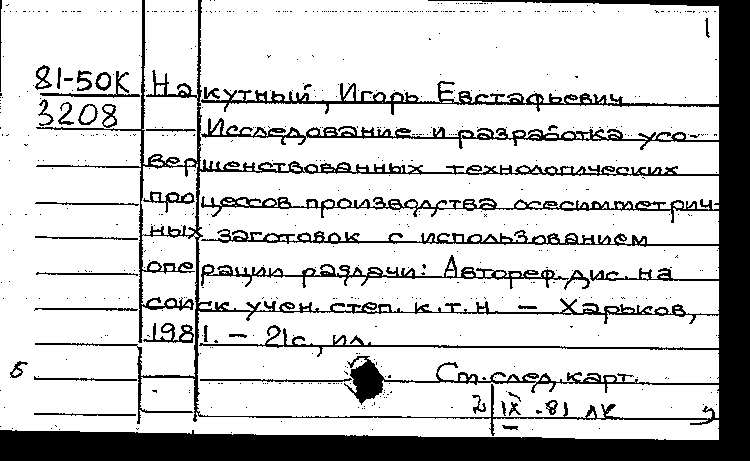 1
81-50К Накутный, Игорь Евстафьевич
3208 Исследование и разработка усо-
вершенствованных технологических
процессов производства осесимметрич-
ных заготовок с использованием
операции раздачи: Автореф. дис. на
соиск. учен. степ. к.т.н. — Харьков,
1981. — 21с., ил.
Б Ст. след. карт.
IX .81